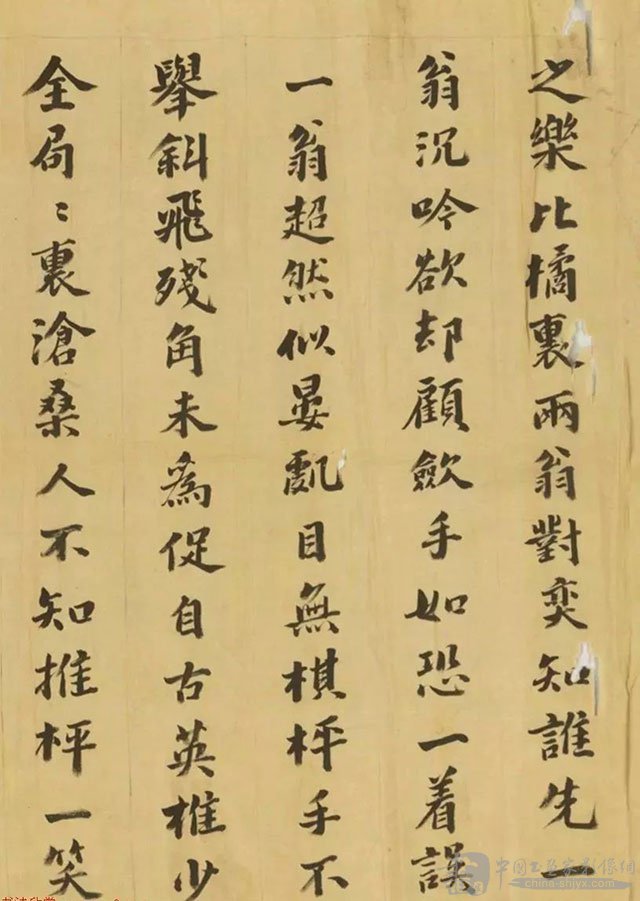 之樂比橘裏兩翁對奕知誰先一
翁沉吟欲却顧歛手如恐一着誤
一翁超然似晏亂目無棋枰手不
舉斜飛殘角未為促自古英雄少
全局〻裏滄桑人不知推枰一笑
中國工艺家影像网
china-shjyx.com